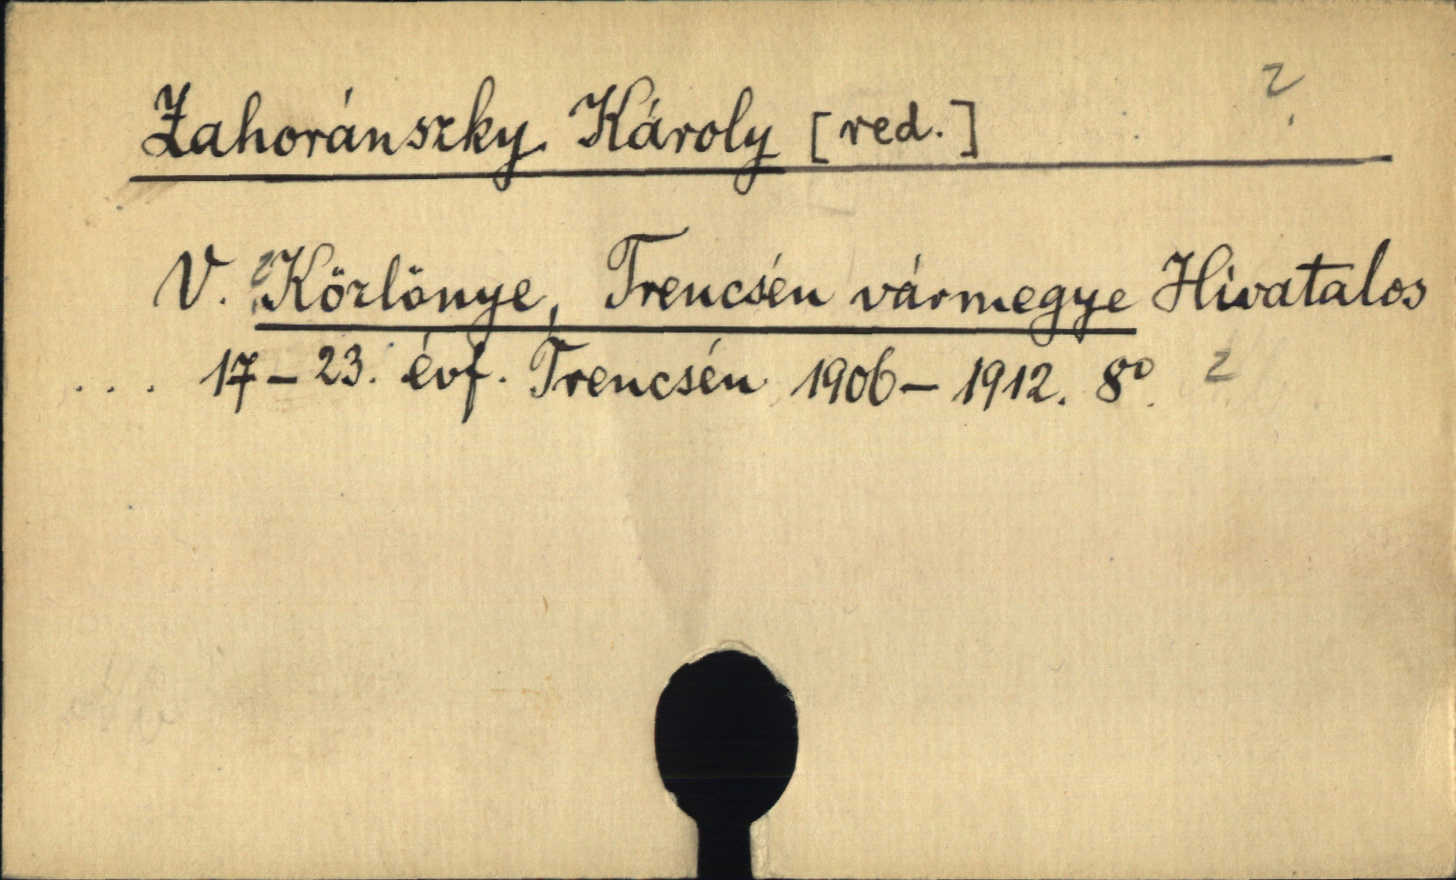 Zahoránszky Károly [red.] 2
V. Közlönye, Trencsén vármegye Hivatalos
... 17-23. évf. Trencsén 1906-1912. 8° 2